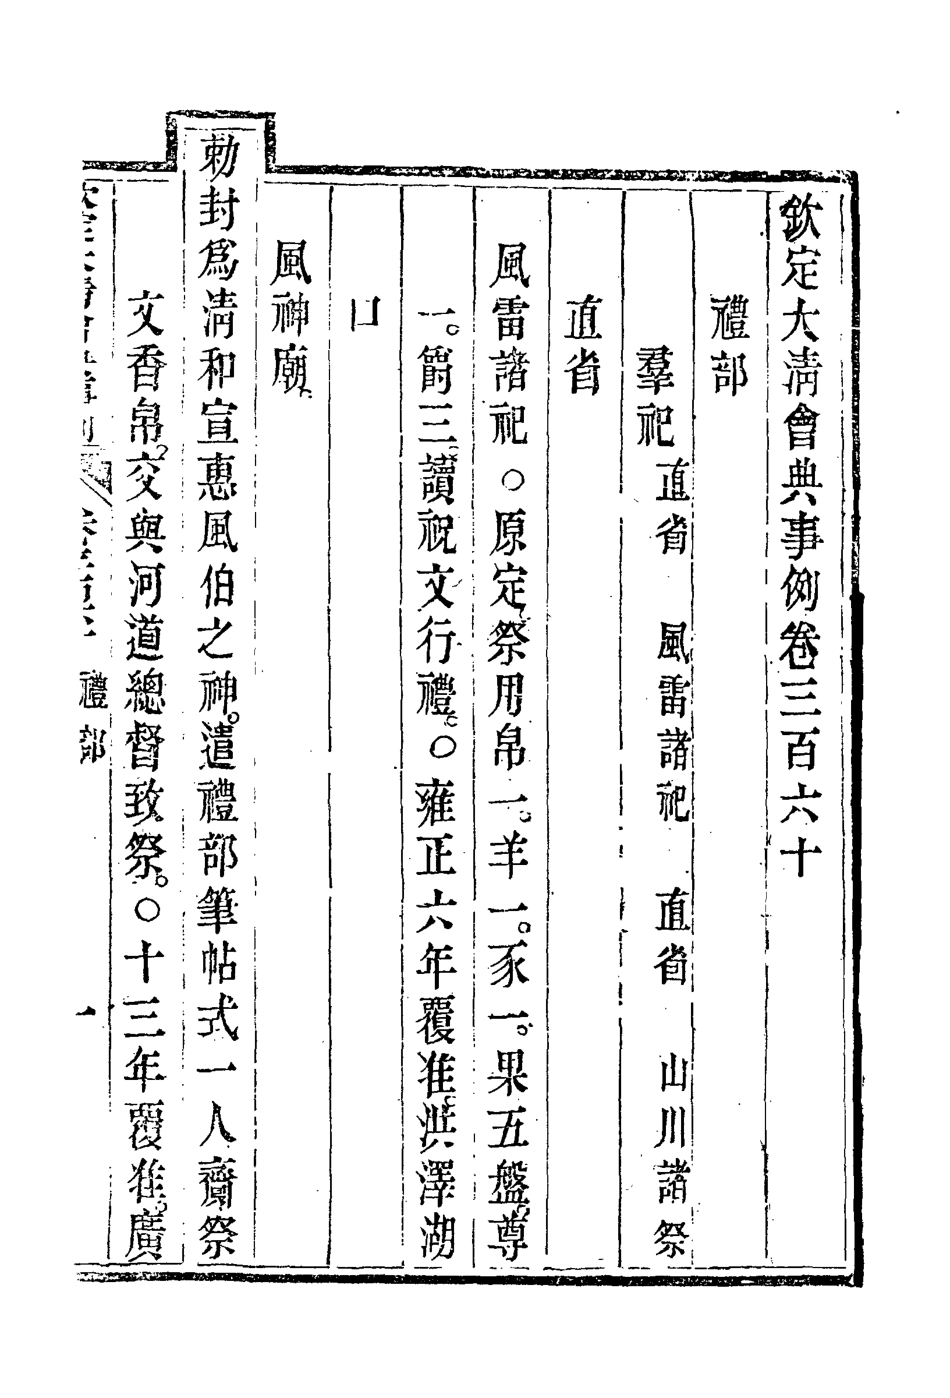 欽定大淸會典事例卷三百六十
禮部
羣祀 直省 風雷諸祀 直省 山川諸祭
直省
風雷諸祀○原定祭用帛一。羊一。豕一。果五盤。尊
一。爵三。讀祝文行禮。○雍正六年覆准。洪澤湖
口
風神廟。
勅封爲淸和宣惠風伯之神。遣禮部筆帖式一人齎祭
文香帛。交與河道總督致祭。○十三年覆准。廣
禮部 一